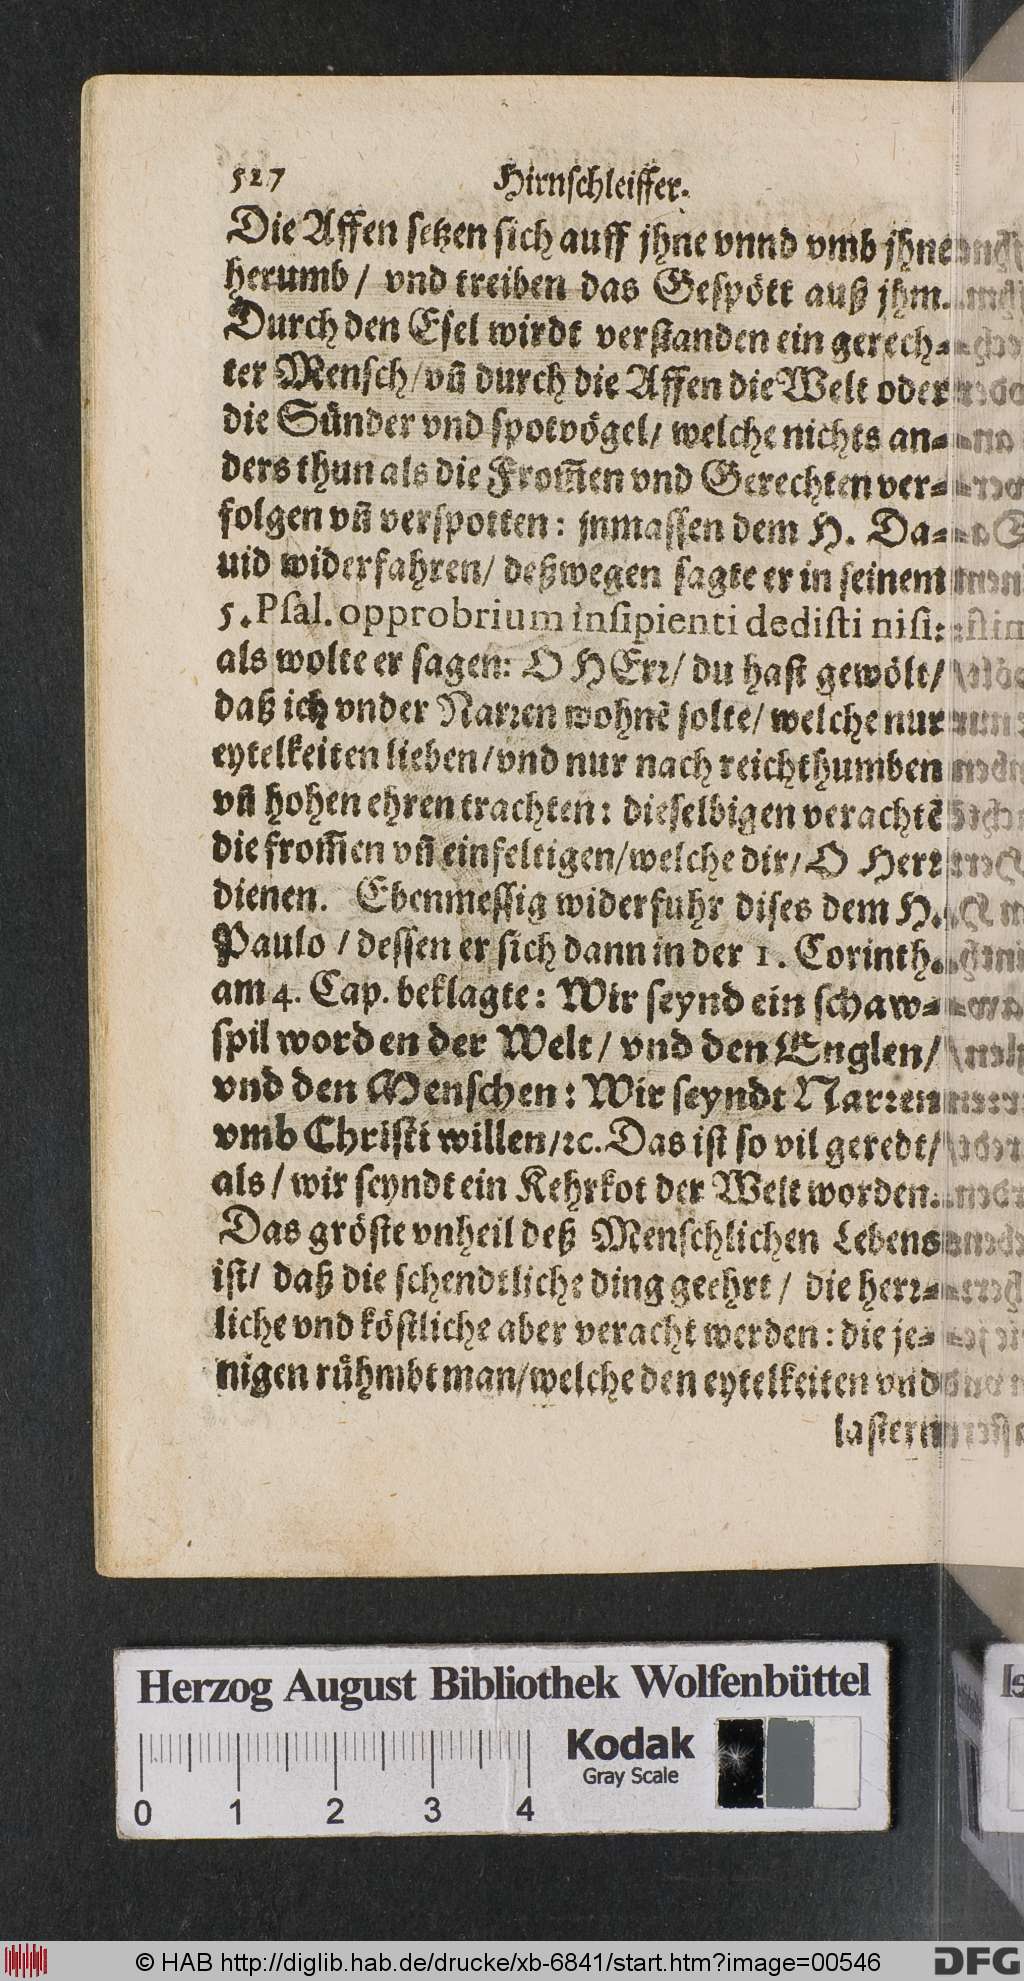 527 Hirnschleiffer.
Die Affen setzen sich auff jhne vnnd vmb jhne
herumb / vnd treiben das Gespött auß jhm.
Durch den Esel wirdt verstanden ein gerech-
ter Mensch / vñ durch die Affen die Welt oder
die Sünder vnd spotvögel / welche nichts an-
ders thun als die From̃en vnd Gerechten ver-
folgen vñ verspotten: jnmassen dem H. Da-
uid widerfahren / deßwegen sagte er in seinem
5. Psal. opprobrium insipienti dedisti nisi:
als wolte er sagen: O HErr / du hast gewölt /
daß ich vnder Narren wohnẽ solte / welche nur
eytelkeiten lieben / vnd nur nach reichthumben
vñ hohen ehren trachten: dieselbigen verachtẽ
die from̃en vñ einfeltigen / welche dir / O Herr
dienen. Ebenmessig widerfuhr dises dem H.
Paulo / dessen er sich dann in der 1. Corinth.
am 4. Cap. beklagte: Wir seynd ein schaw-
spil worden der Welt / vnd den Englen /
vnd den Menschen: Wir seyndt Narren
vmb Christi willen / ꝛc. Das ist so vil geredt /
als / wir seyndt ein Kehrkot der Welt worden.
Das gröste vnheil deß Menschlichen Lebens
ist / daß die schendtliche ding geehrt / die herr-
liche vnd köstliche aber veracht werden: die je-
nigen rühmbt man / welche den eytelkeiten vnd
lastern
Herzog August Bibliothek Wolfenbüttel
Kodak
Gray Scale
0 1 2 3 4
© HAB http://diglib.hab.de/drucke/xb-6841/start.htm?image=00546
DFG